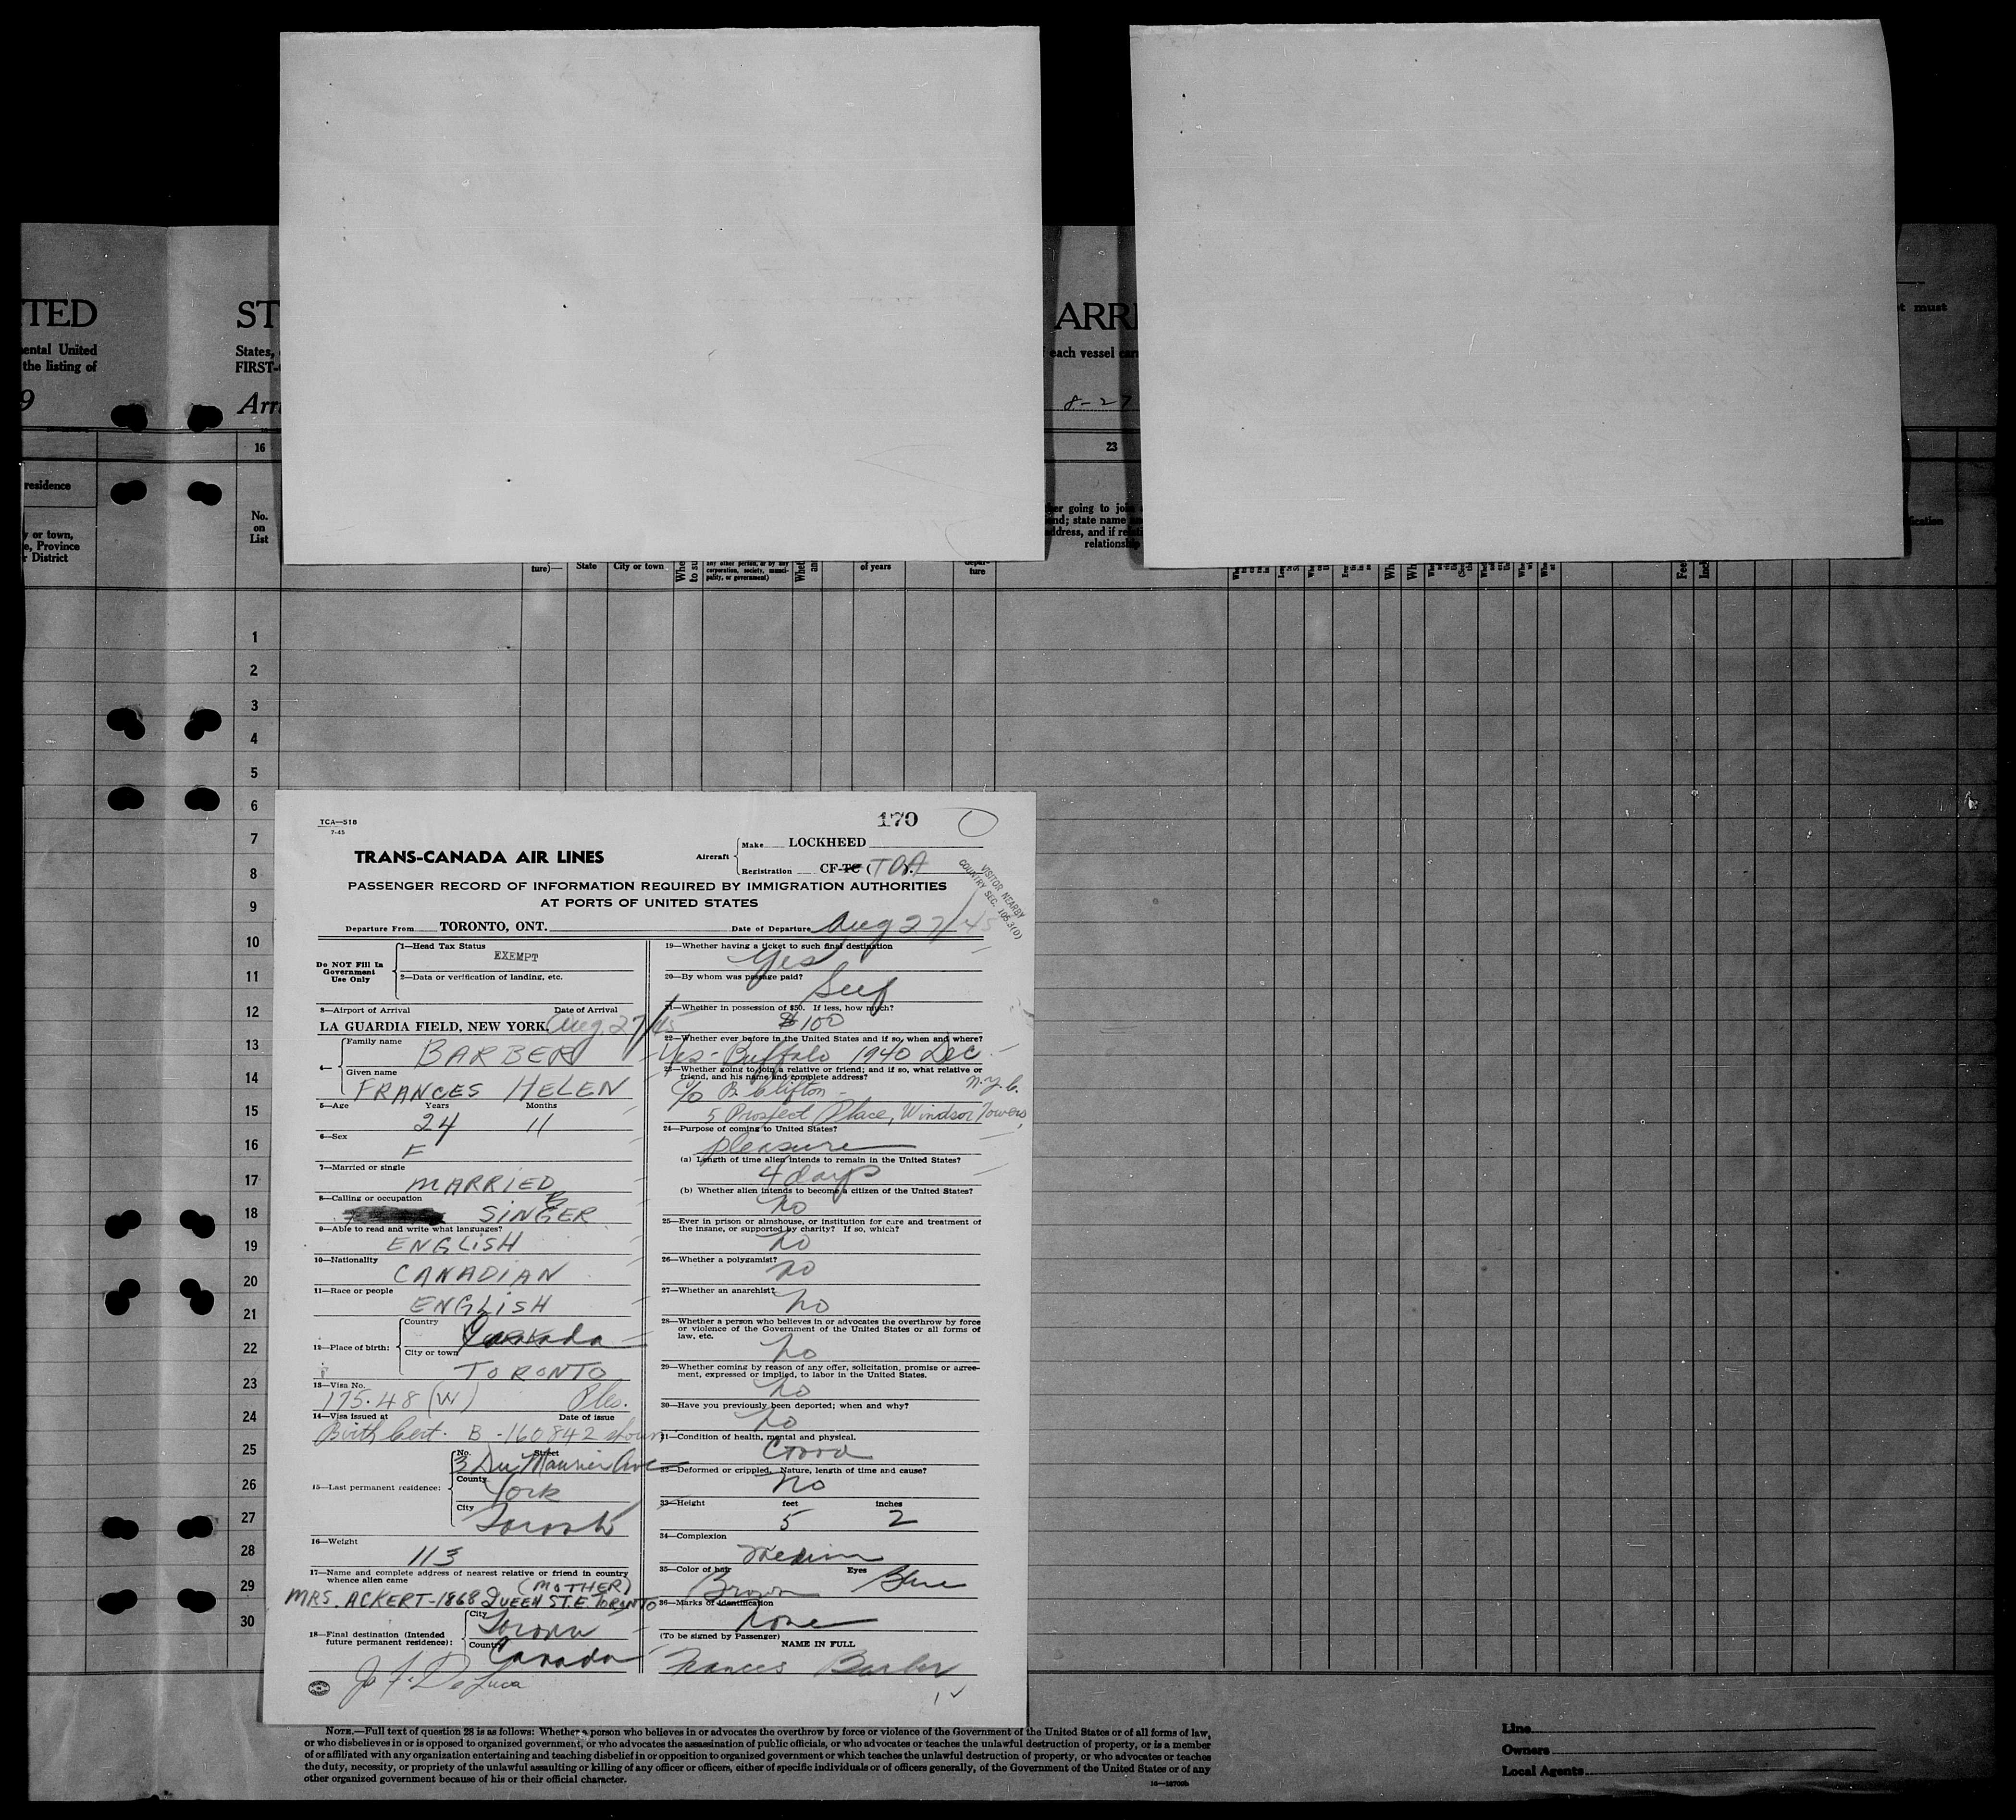 TED
ental United
the listing of
9
residence
y or town,
e, Province
r District
ST
States,
FIRST-
Arri
16
No.
on
List
ARRI
each vessel carr
8-27
23
her going to join
end; state name
address, and if
relationship
t must
ication
ture)—
State
City or town
any other person, or by any
corporation, society, munici-
pality, or government)
of years
depar-
ture
1
2
3
4
5
6
7
8
9
10
11
12
13
14
15
16
17
18
19
20
21
22
23
24
25
26
27
28
29
30
TCA—518
7-45
170
TRANS-CANADA AIR LINES
Aircraft
Make LOCKHEED
Registration CF-TC (
VISITOR NEARBY
COUNTRY SEC. 105.3(0)
PASSENGER RECORD OF INFORMATION REQUIRED BY IMMIGRATION AUTHORITIES
AT PORTS OF UNITED STATES
Departure From TORONTO, ONT. Date of Departure Aug 27/45
Do NOT Fill In
Government
Use Only
1—Head Tax Status
EXEMPT
2—Data or verification of landing, etc.
3—Airport of Arrival Date of Arrival
LA GUARDIA FIELD, NEW YORK. Aug. 27/45
4—
Family name
BARBER
Given name
FRANCES HELEN
5—Age Years Months
24 11
6—Sex
F
7—Married or single
MARRIED
8—Calling or occupation
SINGER
9—Able to read and write what languages?
ENGLISH
10—Nationality
CANADIAN
11—Race or people
ENGLISH
12—Place of birth:
Country
Canada
City or town
TORONTO
13—Visa No.
175.48 (W) Ples.
14—Visa issued at Date of issue
Birth Cert. B-160842 shown
15—Last permanent residence:
No. Street
3 Du Maurier Ave
County
York
City
Toronto
16—Weight
113
17—Name and complete address of nearest relative or friend in country
whence alien came
(MOTHER)
MRS. ACKERT-1868 QUEEN ST. E. TORONTO
18—Final destination (Intended
future permanent residence):
City
Toronto
Country
Canada
De Luca
19—Whether having a ticket to such final destination
Yes
20—By whom was passage paid?
Self
21—Whether in possession of $50. If less, how much?
$100
22—Whether ever before in the United States and if so, when and where?
Yes - Buffalo 1940 Dec
23—Whether going to join a relative or friend; and if so, what relative or
friend, and his name and complete address?
c/o B. Clifton - N.Y.C.
5 Prospect Place, Windsor Towers,
24—Purpose of coming to United States?
pleasure
(a) Length of time alien intends to remain in the United States?
4 days
(b) Whether alien intends to become a citizen of the United States?
no
25—Ever in prison or almshouse, or institution for care and treatment of
the insane, or supported by charity? If so, which?
no
26—Whether a polygamist?
no
27—Whether an anarchist?
no
28—Whether a person who believes in or advocates the overthrow by force
or violence of the Government of the United States or all forms of
law, etc.
no
29—Whether coming by reason of any offer, solicitation, promise or agree-
ment, expressed or implied, to labor in the United States.
no
30—Have you previously been deported; when and why?
no
31—Condition of health, mental and physical.
Good
32—Deformed or crippled. Nature, length of time and cause?
no
33—Height feet inches
5 2
34—Complexion
Medium
35—Color of hair Eyes
Brown Blue
36—Marks of identification
none
(To be signed by Passenger)
NAME IN FULL
Frances Barber
NOTE.—Full text of question 28 is as follows: Whether a person who believes in or advocates the overthrow by force or violence of the Government of the United States or of all forms of law,
or who disbelieves in or is opposed to organized government, or who advocates the assassination of public officials, or who advocates or teaches the unlawful destruction of property, or is a member
of or affiliated with any organization entertaining and teaching disbelief in or opposition to organized government or which teaches the unlawful destruction of property, or who advocates or teaches
the duty, necessity, or propriety of the unlawful assaulting or killing of any officer or officers, either of specific individuals or of officers generally, of the Government of the United States or of any
other organized government because of his or their official character.
Line
Owners
Local Agents